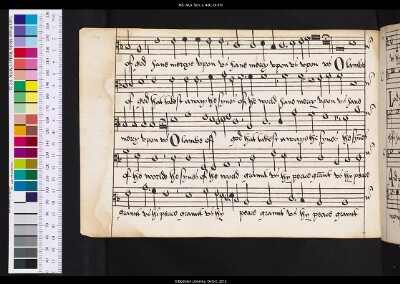 of god have mercye upon us have mercy upon us upon us O lambe
of god that takest away the synes of the world have mercy upon us have
mercy upon us O lambe of god that takest away the synes the synes
of the worlde the synes of the world graunt us thy peace graunt us thy peace
graunt us thy peace graunt us thy peace graunt us thy peace graunt
©Bodleian Libraries, Oxford, 2012